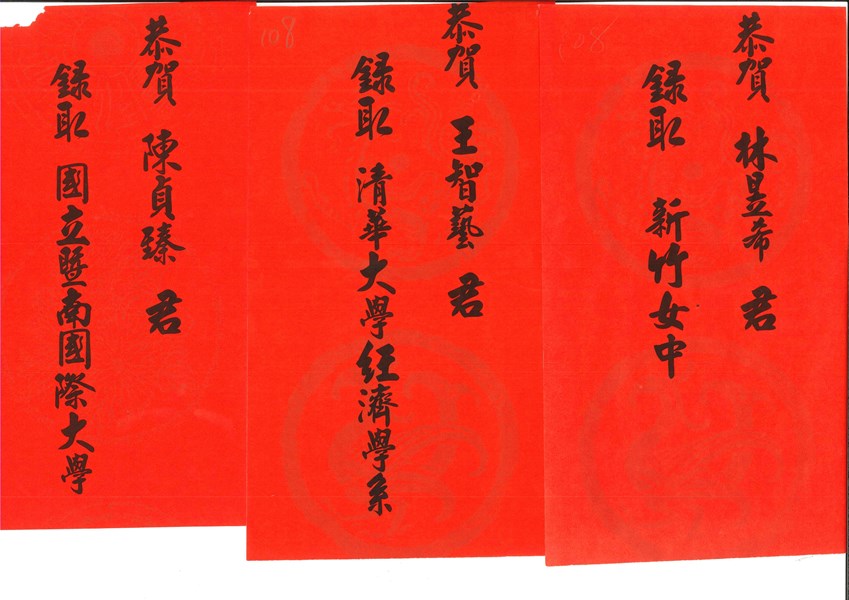 恭賀 林昱希 君
錄取 新竹女中
108
恭賀 王智藝 君
錄取 清華大學經濟學系
108
恭賀 陳貞臻 君
錄取 國立暨南國際大學